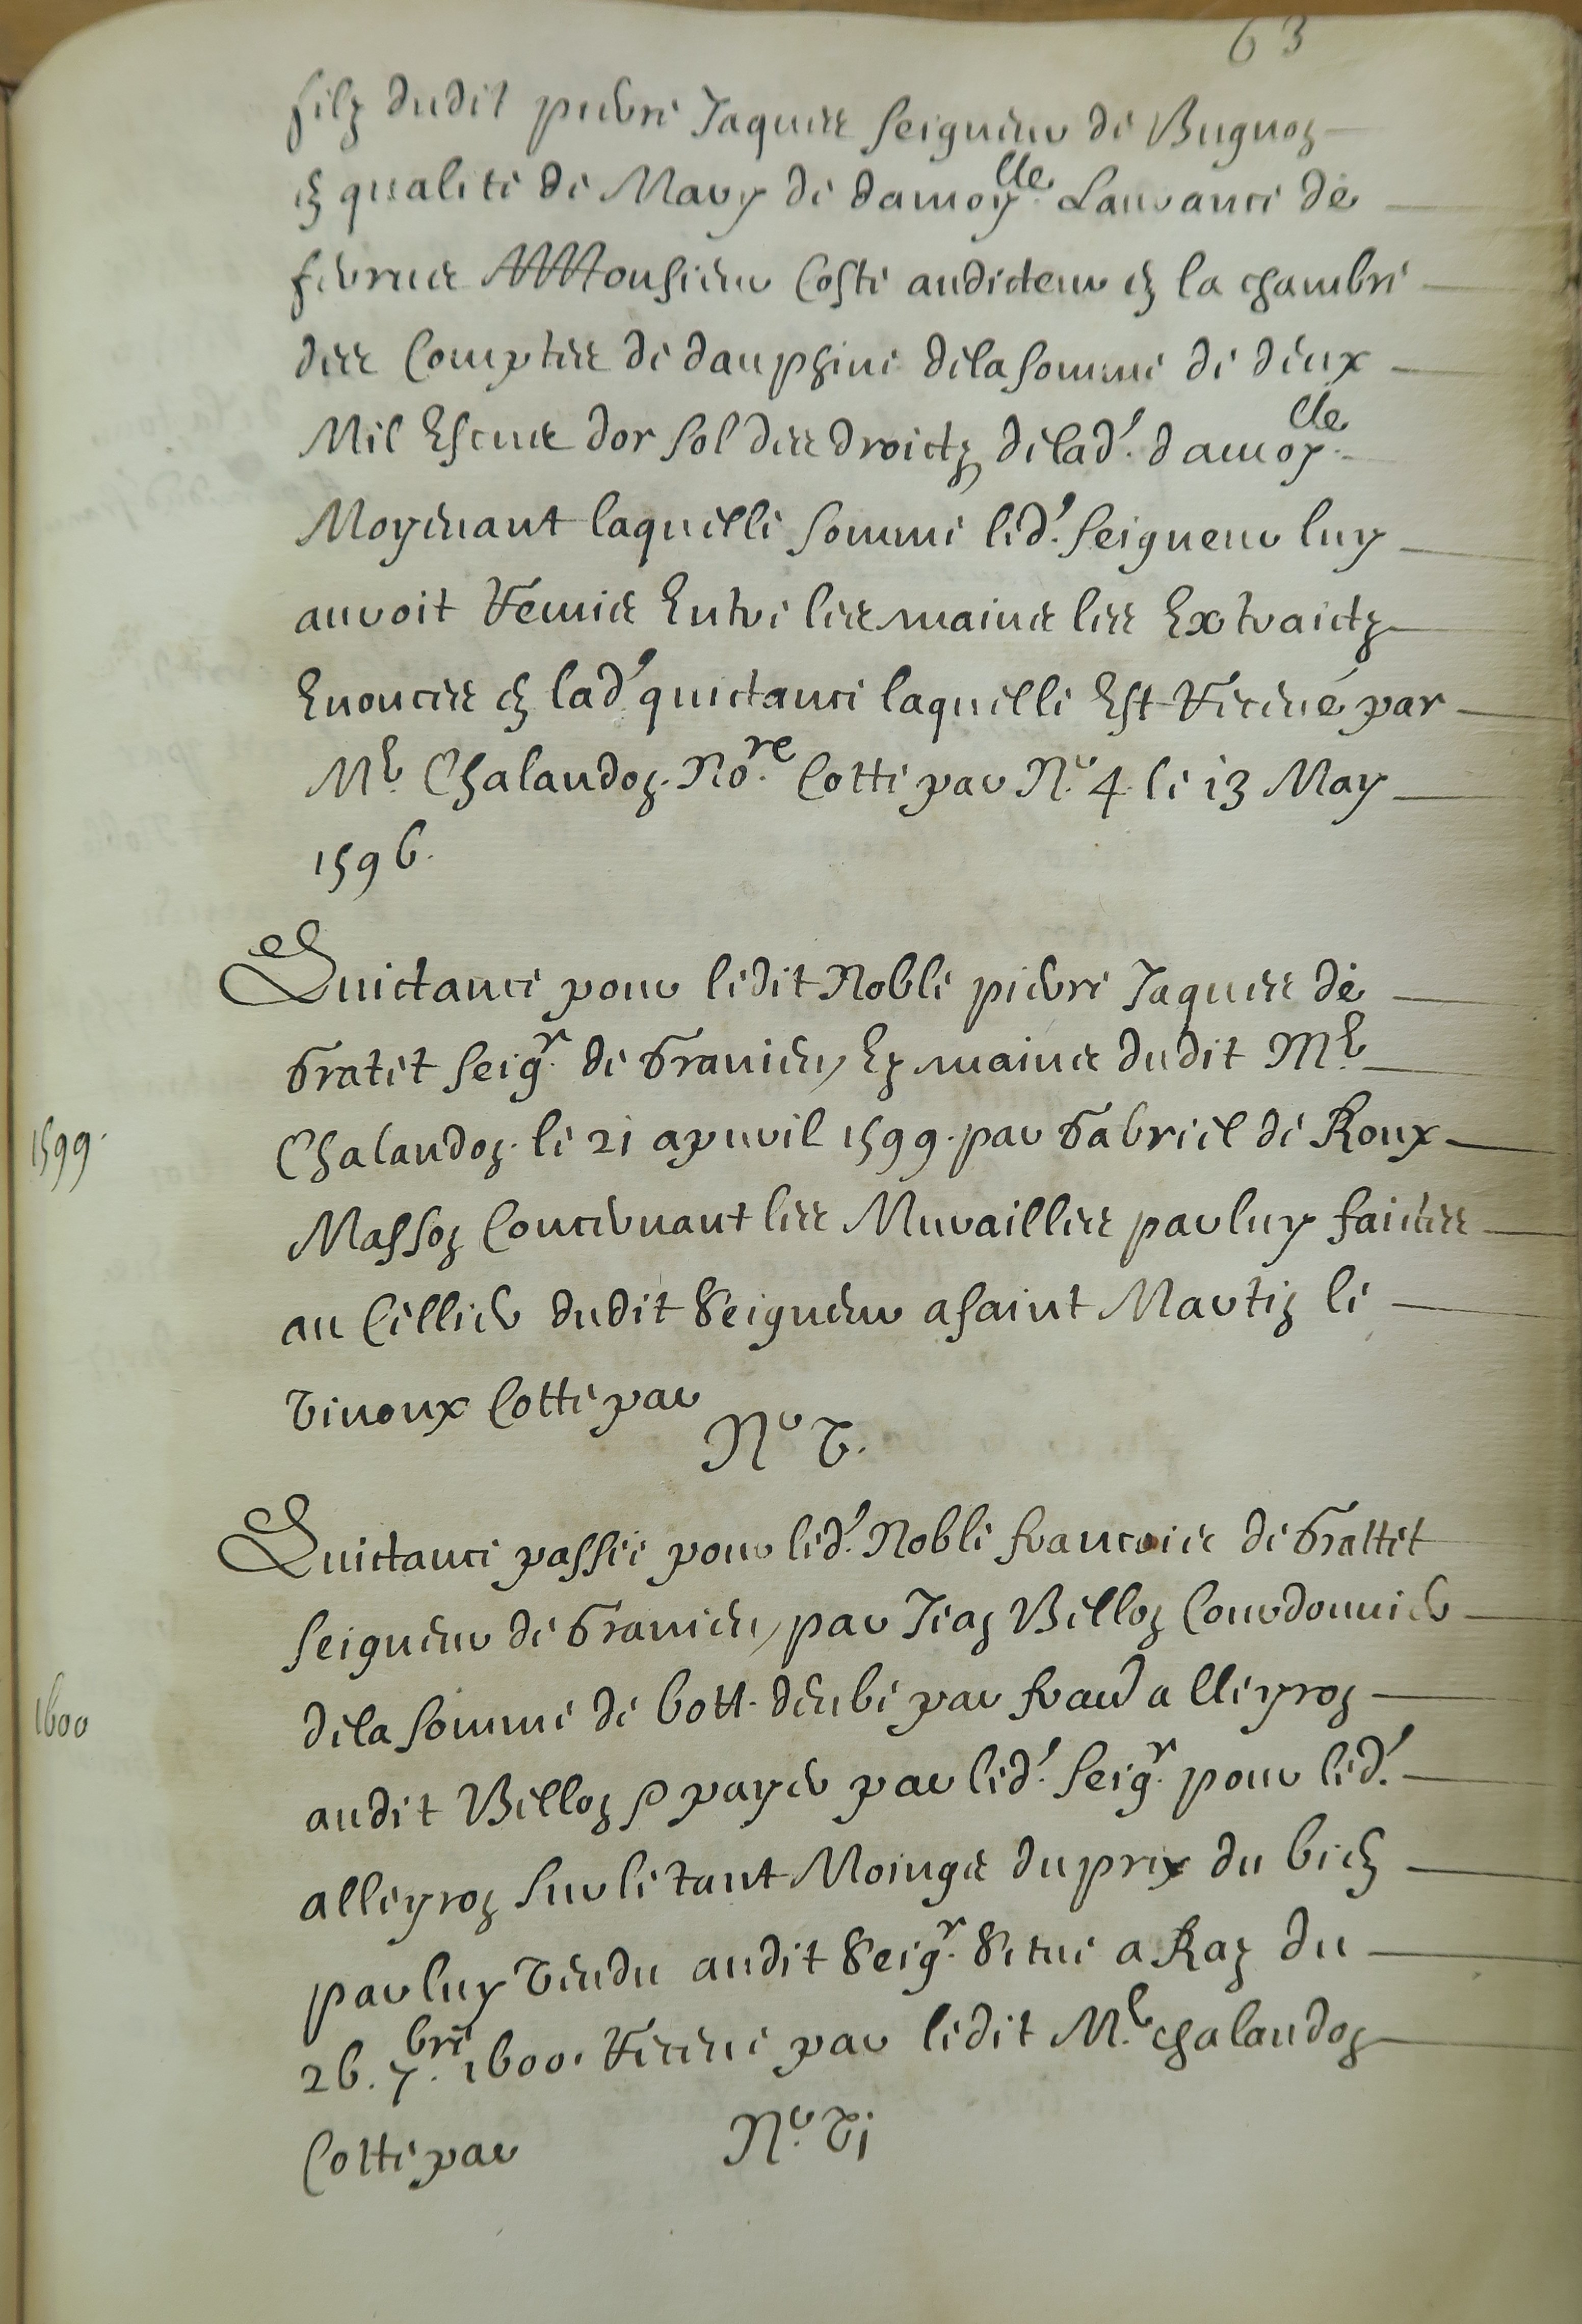 63
filz dudit pierre Jaques seigneur de Bugnon
en qualité de Mary de damoy.lle Laurance de
ferrus A Monsieur Coste audicteur en la chambre
des Comptes de dauphine dela somme de deux
Mil Escus dor sol des droictz delad.' damoy.lle
Moyenant laquelle somme led.' seigneur luy
auroit Remis Entre les mains les Extraictz
Enonces en lad.' quictance laquelle Est Receue par
Me. Chalandon No.re Cotte par No. 4. le 13 May
1596.
Quictance pour ledit Noble pierre Jaques de
Gratet seigr. de Granieu, Ez mains dudit Me.
1599.
Chalandon. le 21 apuril 1599. par Gabriel de Roux
Masson Concernant les Murailles par luy faictes
au Cellier dudit Seigneur a saint Martin le
Vinoux Cotte par
No V.
Quictance passee pour led.' Noble francois de Grattet
seigneur de Granieu, par Jean Billon Courdonnier
1600
dela somme de 60tt. deube par francs alleyron
audit Billon & payer par led.' seigr. pour led.'
alleyron sur le tant Moings du prix du bien
par luy Vendu audit Seigr. Situe a Raz du
26. 7.bre 1600. Receue par ledit Me. chalandon
Cotte par No. Vj